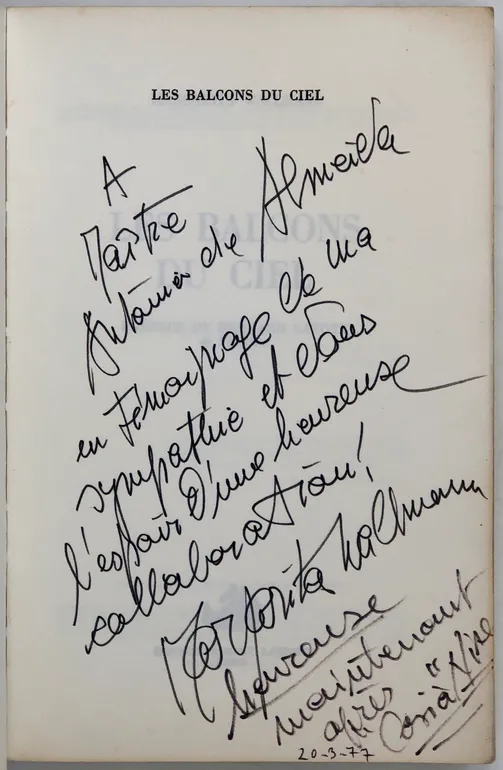 LES BALCONS DU CIEL
A
Maître
António de Almeida
en témoignage de ma
sympathie et dans
l'espoir d'une heureuse
collaboration!
Margarita Wallmann
heureuse
maintenant
après "
Così
20-3-77